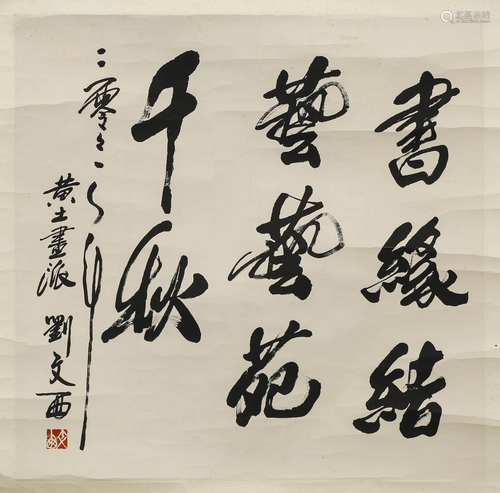 書緣結
藝藝苑
千秋
二零
黄土畫派 劉文西